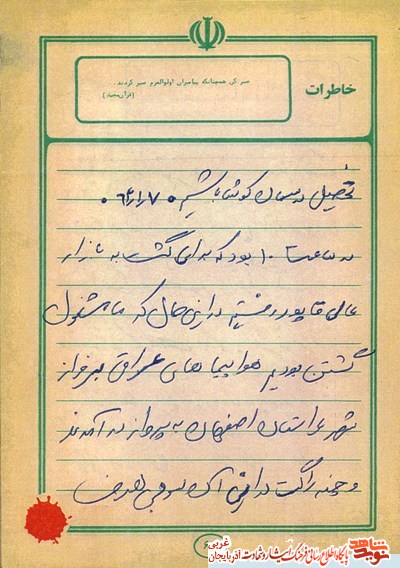 خاطرات
صبر کن همچنانکه پیامبران اولوالعزم صبر کردند.
(قرآن مجید)
تحصیل درسمان کوشا باشیم ۰ ۶۴/۱/۷ ۰
در ساعت ۱۰ بود که برای گشت به بازار
عالی قاپو رفتیم در این حال که ما مشغول
گشتن بودیم هواپیماهای عراق بر فراز
شهر استان اصفهان به پرواز در آمدند
و چند راکت در
نوید شاهد
پایگاه اطلاع رسانی فرهنگ ایثار و شهادت آذربایجان غربی